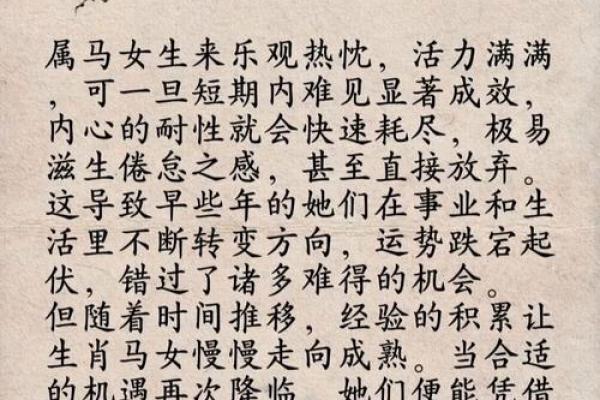 属马女生来乐观热忱，活力满满
，可一旦短期内难见显著成效，
内心的耐性就会快速耗尽，极易
滋生倦怠之感，甚至直接放弃。
这导致早些年的她们在事业和生
活里不断转变方向，运势跌宕起
伏，错过了诸多难得的机会。
但随着时间推移，经验的积累让
生肖马女慢慢走向成熟。当合适
的机遇再次降临，她们便能凭借